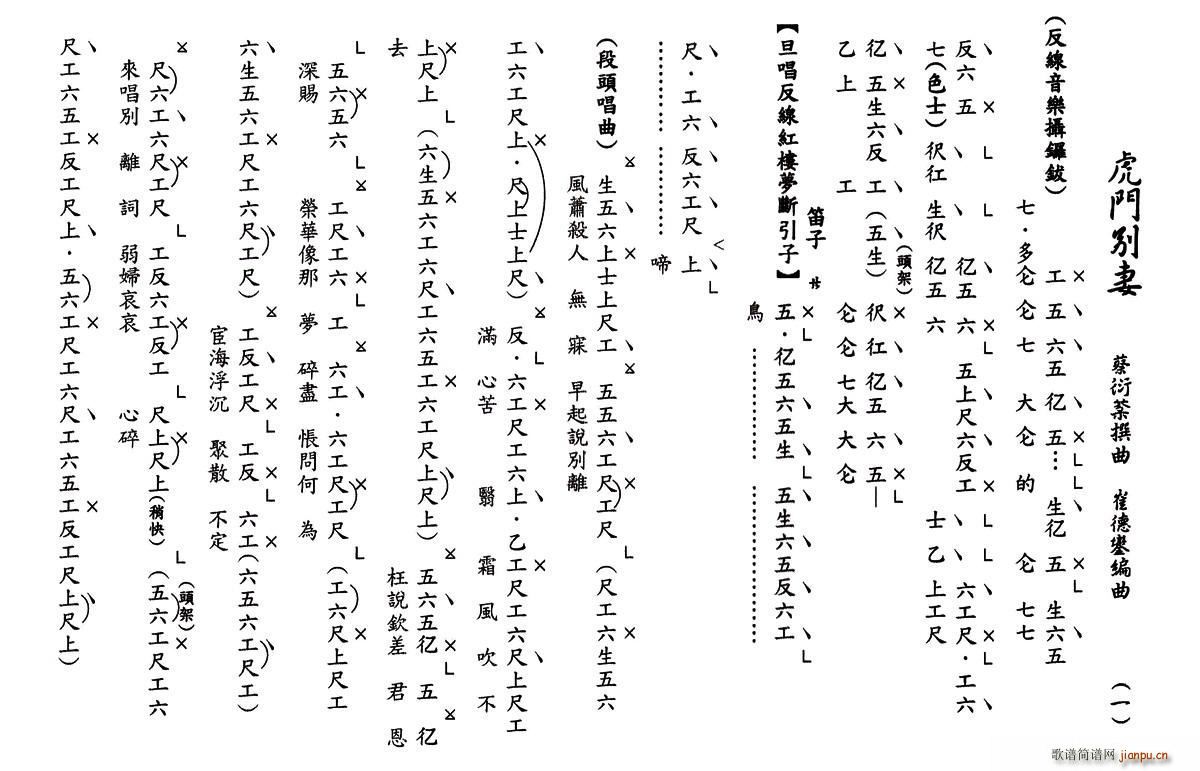 虎門別妻 蔡衍棻撰曲 崔德鑾編曲 (一)
(反線音樂攝鑼鈸) 工五六五仜五⋯生仜五生六五
七·多仑仑七大仑的仑七七
反六五 仜五六五上尺六反工 六工尺·工六
七(色士)伬仜生伬仜五六 士乙上工尺
仜五生六反工(五生)(頭架)伬仜仜五六五—
乙上 工 仑仑七大大仑
笛子 サ
【旦唱反線紅樓夢斷引子】五·仜五六五生 五生六五反六工
鳥
尺·工六反六工尺上
啼
(段頭唱曲)生五六上士上尺工五五六工尺工尺(尺工六生五六
風蕭殺人 無寐 早起說別離
工六工尺上·尺上士上尺)反·六工尺工六上·乙工尺工六尺上尺工
滿心苦 翳霜風吹不
上尺上(六生五六工六尺工六五工六工尺上尺上)五六五仜五仜
去 枉說欽差君恩
五六五六 工尺工六工 六工·六工尺工尺(工六尺上尺工
深賜 榮華像那夢碎盡悵問何為
六生五六工尺工六尺工尺)工反工尺工反六工(六五六工尺工)
宦海浮沉 聚散不定
尺六工六尺工尺 工反六工反工 尺上尺上(稍快)(頭架)(五六工尺工六
來唱別離詞 弱婦哀哀 心碎
尺工六五工反工尺上·五六工尺工六尺工六五工反工尺上尺上)
歌谱简谱网 jianpu.cn